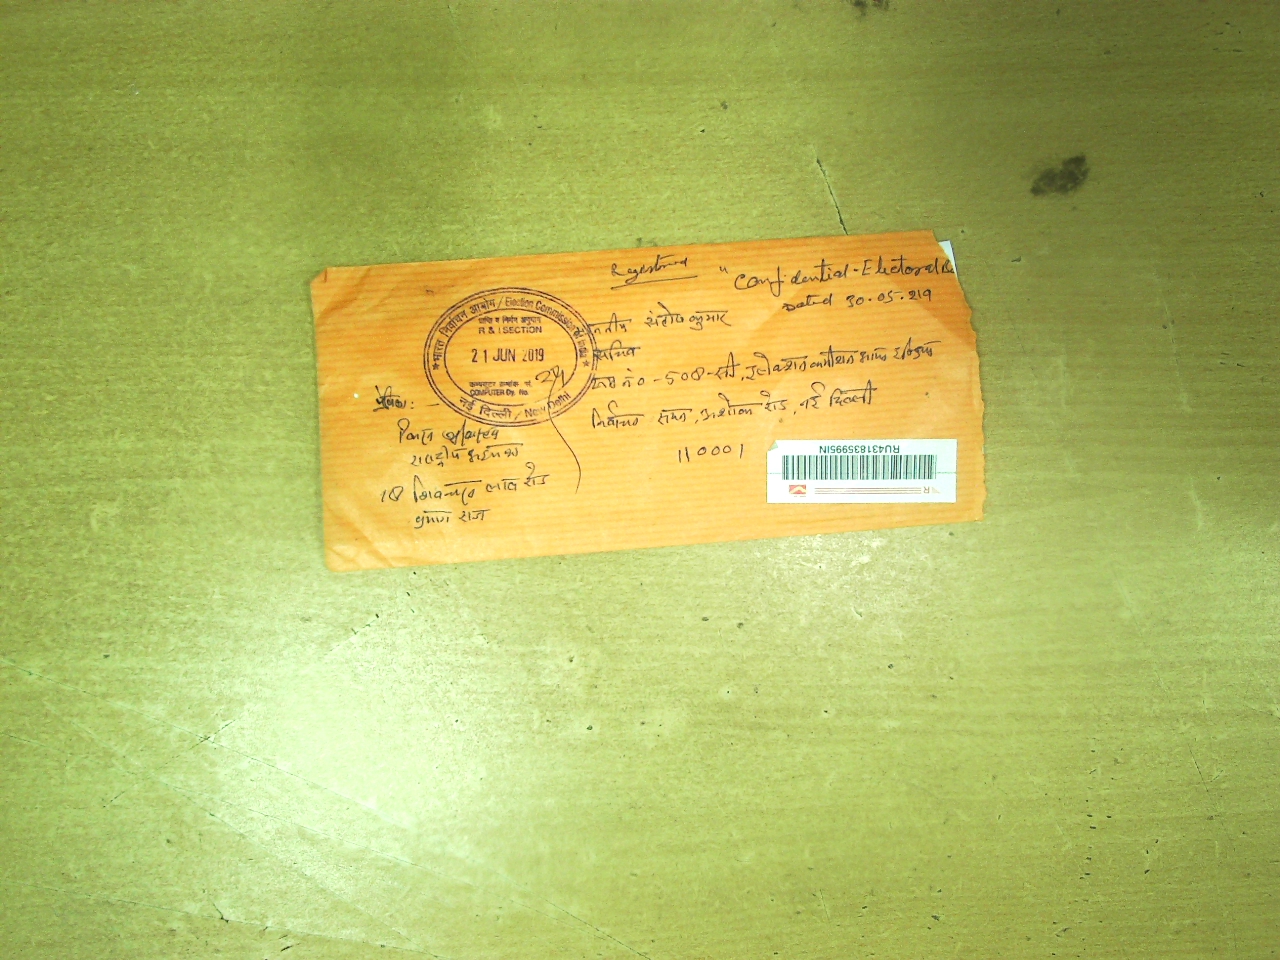 Registered
" Confidential - Electoral
Dated 30.05.219
भारत निर्वाचन आयोग / Election Commission of India
प्राप्ति व निर्गम अनुभाग
R & I SECTION
21 JUN 2019
कम्प्यूटर क्रमांक सं.
COMPUTER Dy. No.
नई दिल्ली / New Delhi
संतोष कुमार
सचिव
नं० - 508 - सी, इलेक्शन कमीशन आफ इण्डिया
निर्वाचन सदन, अशोक रोड, नई दिल्ली
110001
प्रेषक: -
रोड
राज
RU431835995IN
R